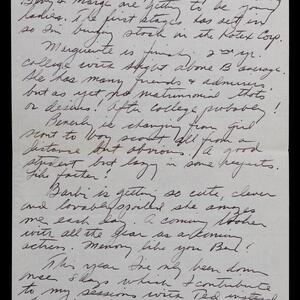 Bev & Marge are getting to be young
ladies. The first stages has set in
so I'm buying stock in the Kotex Corp.
Marguerite is finishing 2nd yr.
college with slight above B average.
She has many friends & admirers
but as yet no matrimonial thots
or desires! After college probably!
Beverly is changing from girl
scout to boy scout all from a
distance but obvious. A good
student but lazy in some respects.
Like father!
Barbi is getting so cute, clever
and lovably spoiled she amazes
me each day. A coming
with all the fear as a coming
actress. Memory like you Bal!
This year I've only been down
once 5 days which I contribute
to my sessions with Dad instead